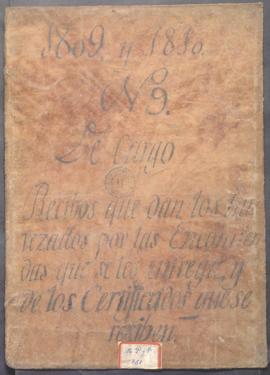 1809. y 1810.
N 9.
De Cargo
Recibos que dan los Inte
rezados por las Encomien
das que se les entrega, y
de los Certificados que se
reciben.